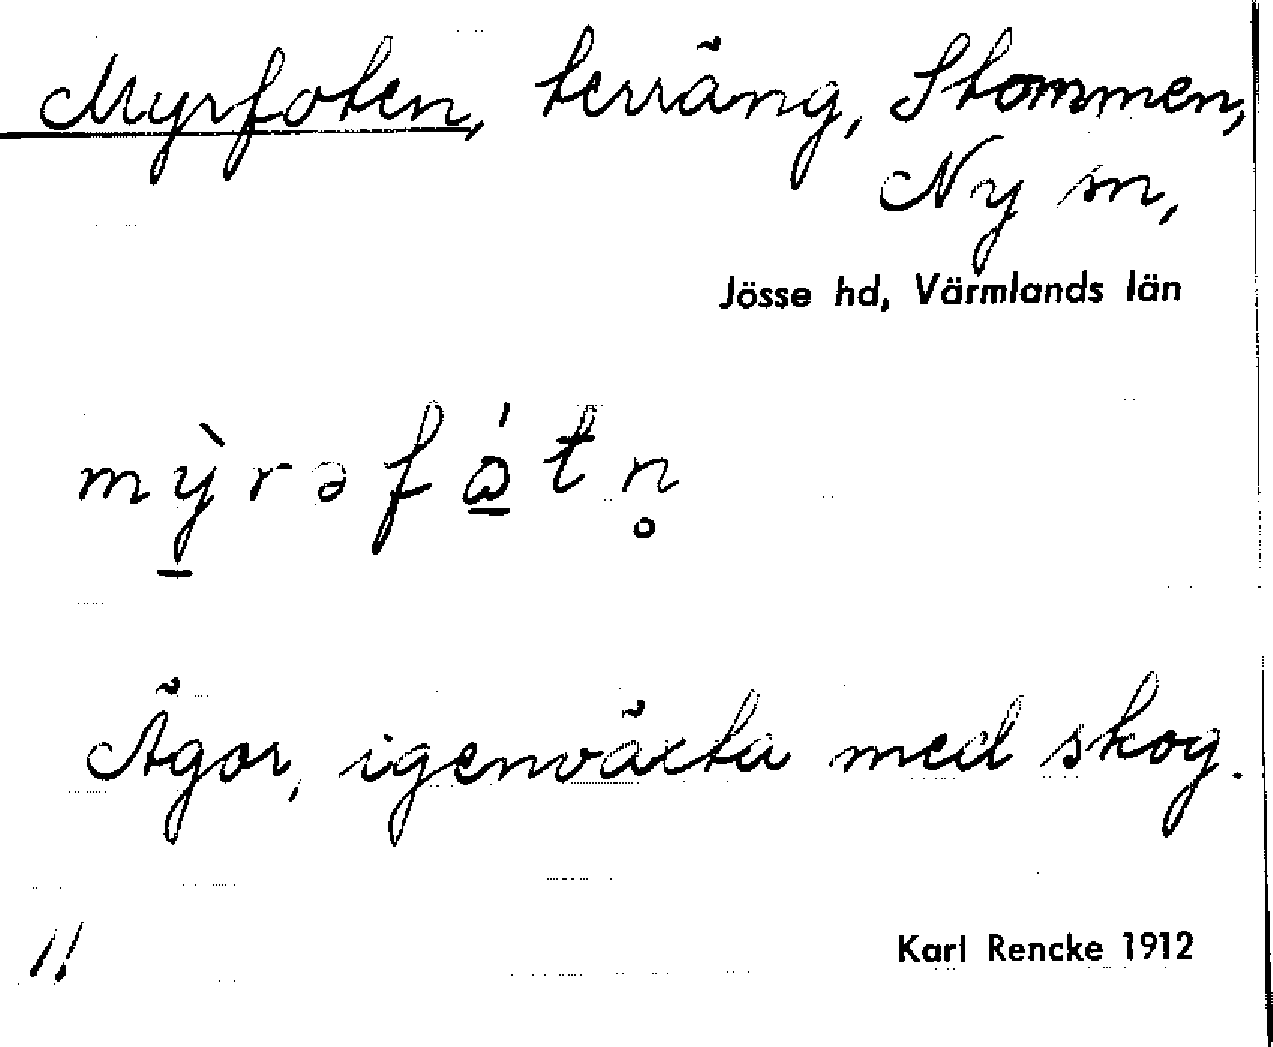 Myrfoten, terräng, Stommen,
Ny sn,
Jösse hd, Värmlands län
mỳ̠rəfɷ̠́tn̥
Ägor, igenväxta med skog.
1!
Karl Rencke 1912